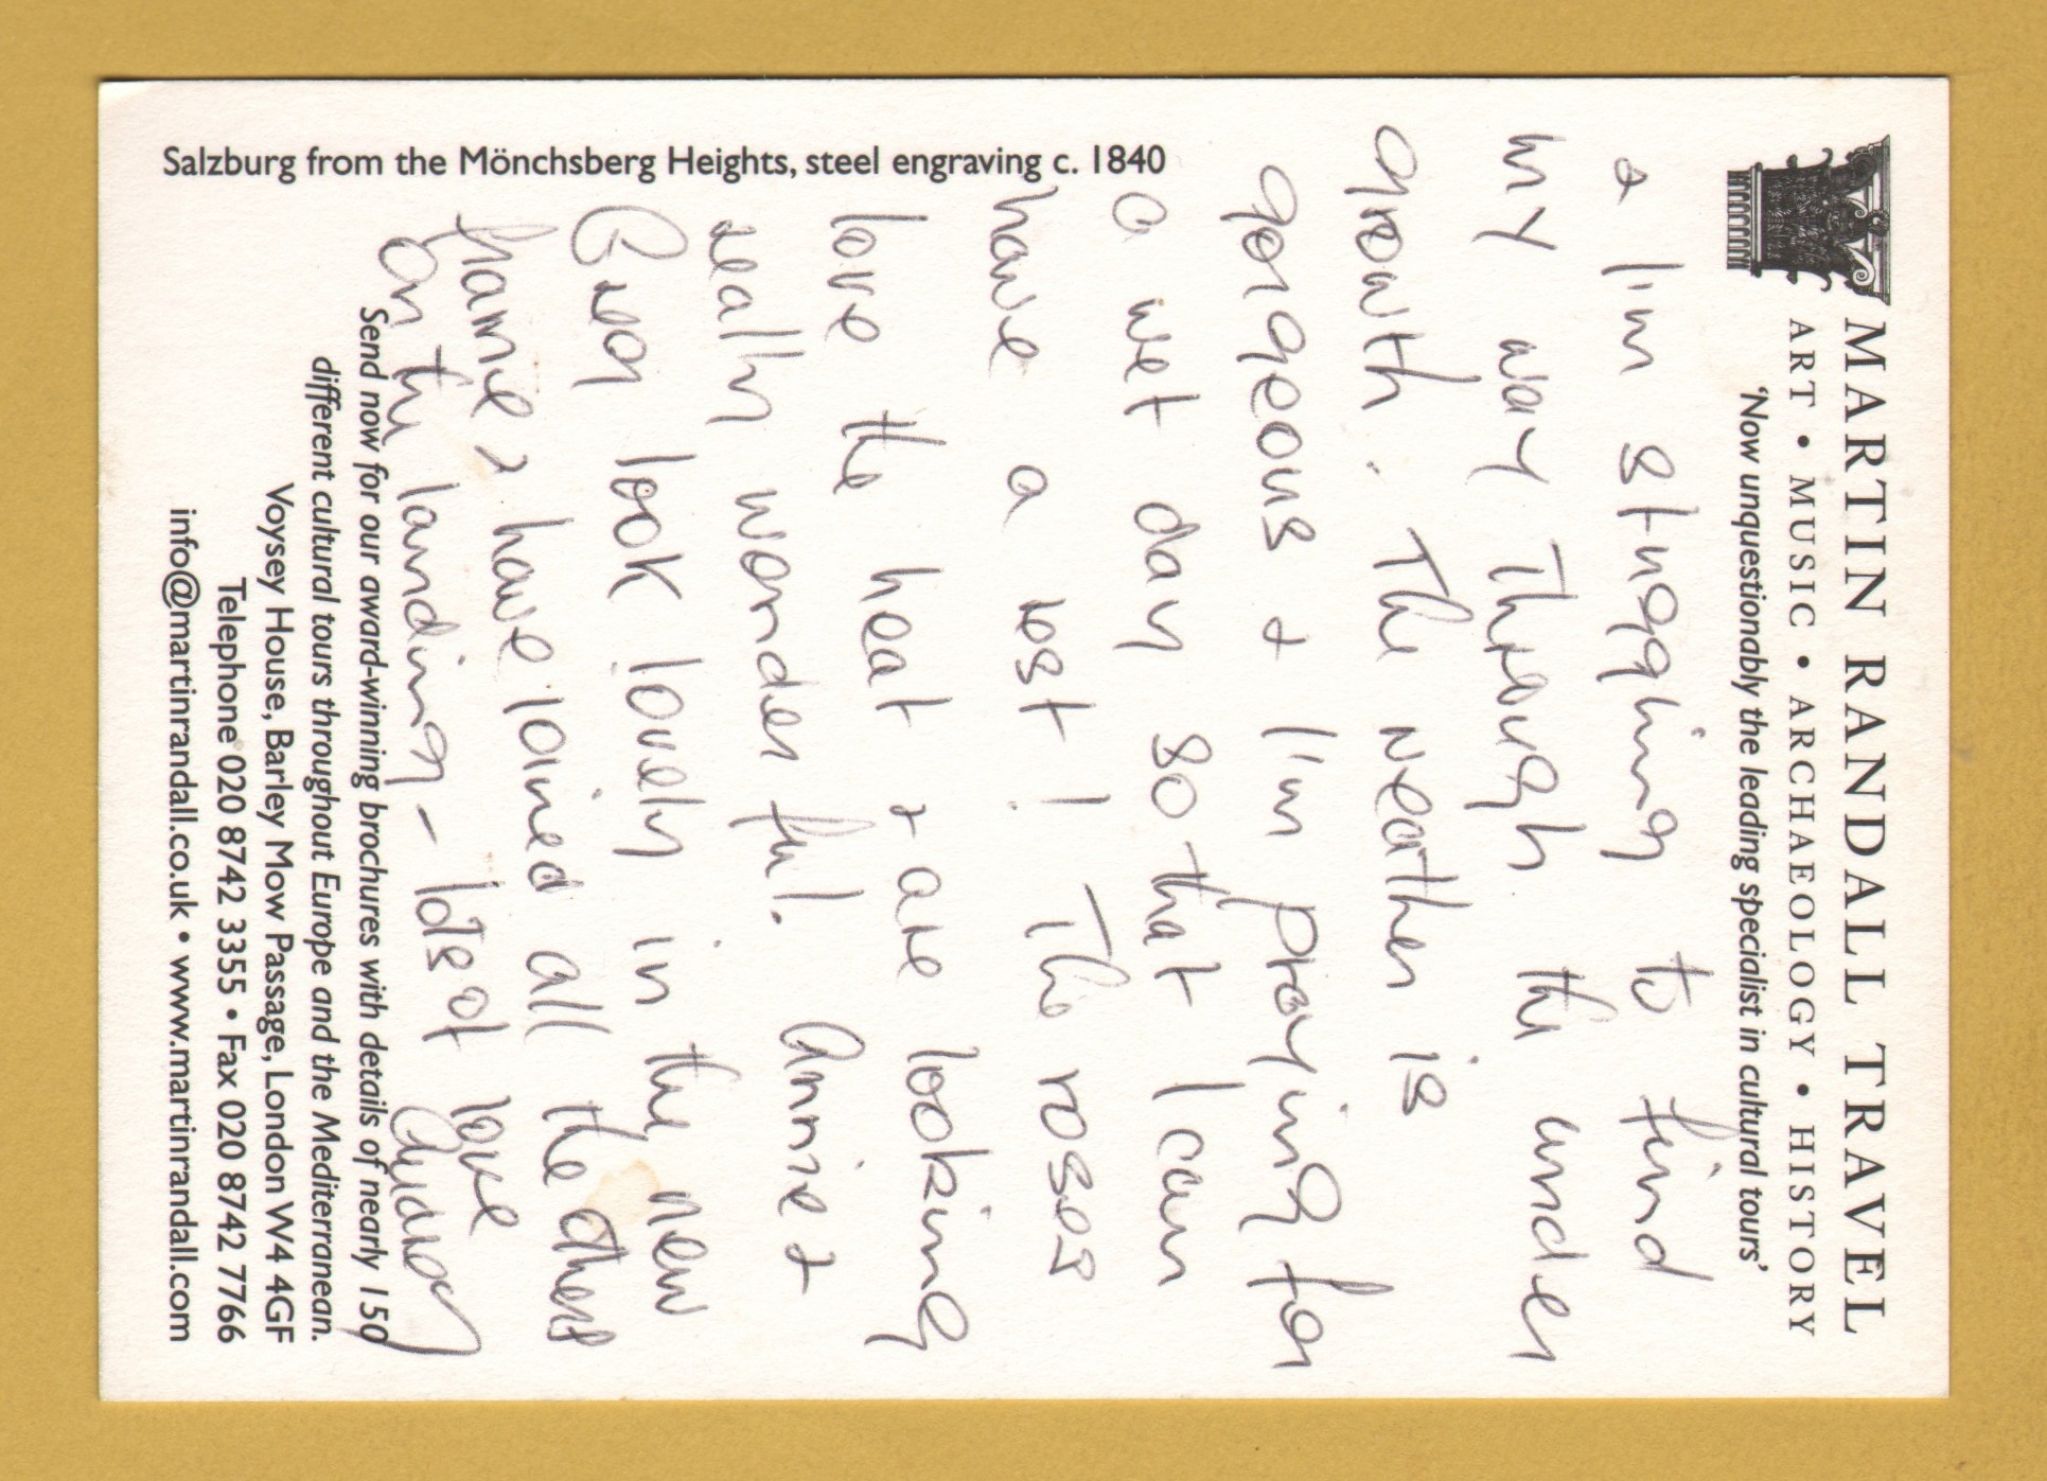 MARTIN RANDALL TRAVEL
ART • MUSIC • ARCHAEOLOGY • HISTORY
'Now unquestionably the leading specialist in cultural tours'
& I'm stuggling to find
my way Through the under
growth. The weather is
gorgeous & I'm praying for
a wet day so that I can
have a rest! The roses
love the heat & are looking
really wonderful. Annie &
Greg look lovely in the new
frame & have joined all the others
on the landing - lots of love
Audrey
Salzburg from the Mönchsberg Heights, steel engraving c. 1840
Send now for our award-winning brochures with details of nearly 150
different cultural tours throughout Europe and the Mediterranean.
Voysey House, Barley Mow Passage, London W4 4GF
Telephone 020 8742 3355 • Fax 020 8742 7766
info@martinrandall.co.uk • www.martinrandall.com